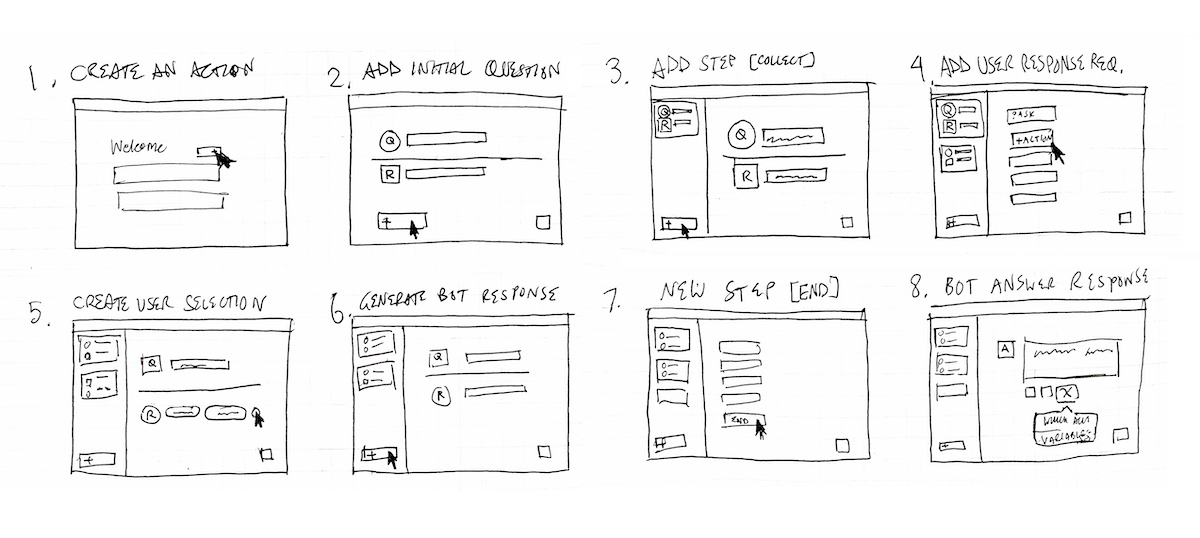 1. CREATE AN ACTION
Welcome
+
2. ADD INITIAL QUESTION
Q
R
+
3. ADD STEP [COLLECT]
Q
R
Q
R
+
4. ADD USER RESPONSE REQ.
Q
R
?ASK
+ACTION
+
5. CREATE USER SELECTION
Q
R
+
6. GENERATE BOT RESPONSE
Q
R
+
7. NEW STEP [END]
END
+
8. BOT ANSWER RESPONSE
A
X
VARIABLES
+